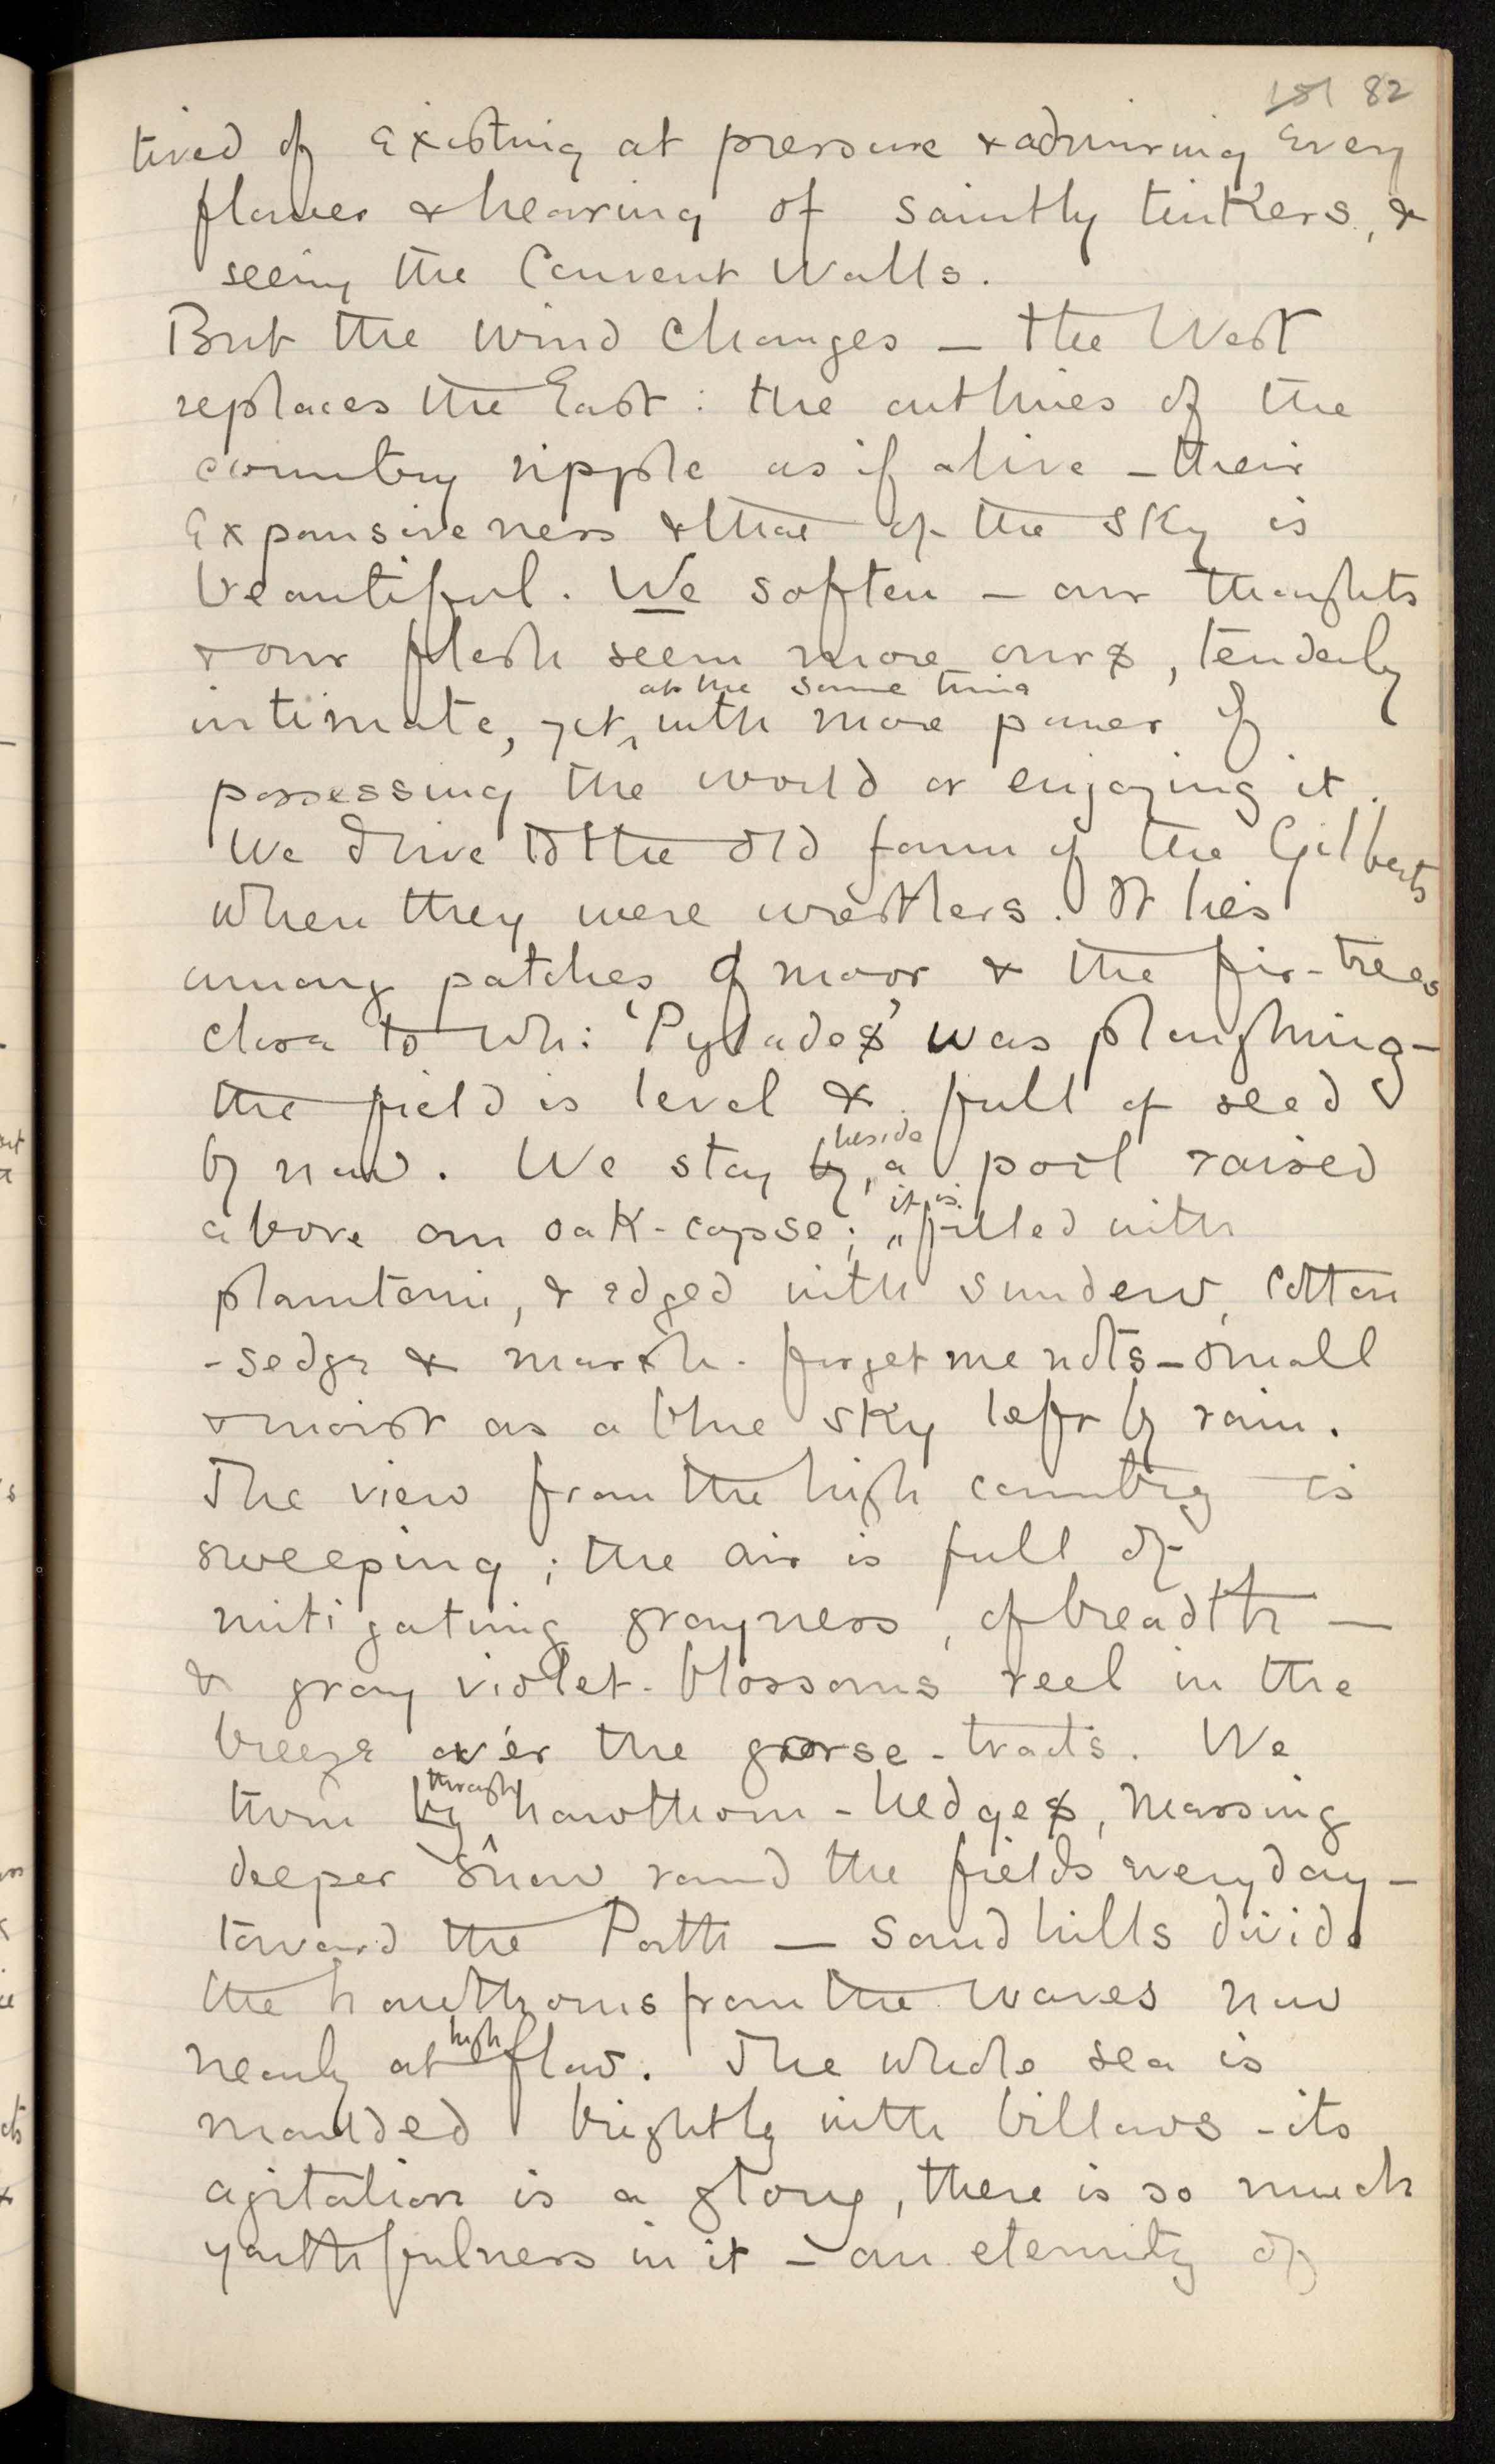 181 82
tired of existing at pressure & admiring every
flower & hearing of saintly tinkers, &
seeing the Convent Walls.
But the wind changes – the West
replaces the East: the outlines of the
country ripple as if alive – their
expansiveness & that of the sky is
beautiful. We soften – our thoughts
& our flesh seem more ours, tenderly
at the same time
intimate, yet, with more power of
possessing the world or enjoying it.
We drive to the old farm of the Gilberts
when they were wrestlers. It lies
among patches of moor & the fir-trees
close to wh: 'Pylades' was ploughing –
the field is level & full of seed
beside
by now. We stay by, a pool raised
it is
above an oak-copse; filled with
plantain, & edged with sundew, cotton
-sedge & marsh-forget me nots – small
& moist as a blue sky left by rain.
The view from the high country is
sweeping; the air is full of
mitigating grayness, of breadth –
& gray violet-blossoms reel in the
breeze over the gorse-tracts. We
through
turn by hawthorn-hedges, massing
deeper snow round the fields every day –
toward the Porth – sandhills divide
the hawthorns from the waves now
high
nearly at flow. The whole sea is
moulded brightly with billows – its
agitation is a glory, there is so much
youthfulness in it – an eternity of